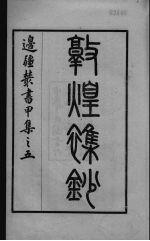 敦煌雜鈔
邊疆叢書甲集之五